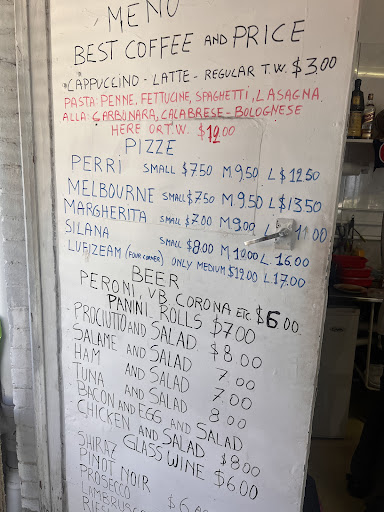 MENU
BEST COFFEE AND PRICE
CAPPUCCINO - LATTE - REGULAR T.W. $3.00
PASTA: PENNE, FETTUCINE, SPAGHETTI, LASAGNA
ALLA: CARBONARA, CALABRESE - BOLOGNESE
HERE OR T.W. $12.00
PIZZE
PERRI SMALL $7.50 M 9.50 L $12.50
MELBOURNE SMALL $7.50 M 9.50 L $13.50
MARGHERITA SMALL $7.00 M 9.00 L $11.00
SILANA SMALL $8.00 M 10.00 L. 16.00
LUFIZEAM (FOUR CORNER) ONLY MEDIUM $12.00 L 17.00
BEER
PERONI, VB, CORONA ETC $6.00
PANINI ROLLS $7.00
- PROCIUTTO AND SALAD $8.00
SALAME AND SALAD 7.00
HAM AND SALAD 7.00
TUNA AND SALAD 8.00
BACON AND EGG AND SALAD
CHICKEN AND SALAD $8.00
GLASS WINE $6.00
SHIRAZ
PINOT NOIR
PROSECCO
LAMBRUSCO